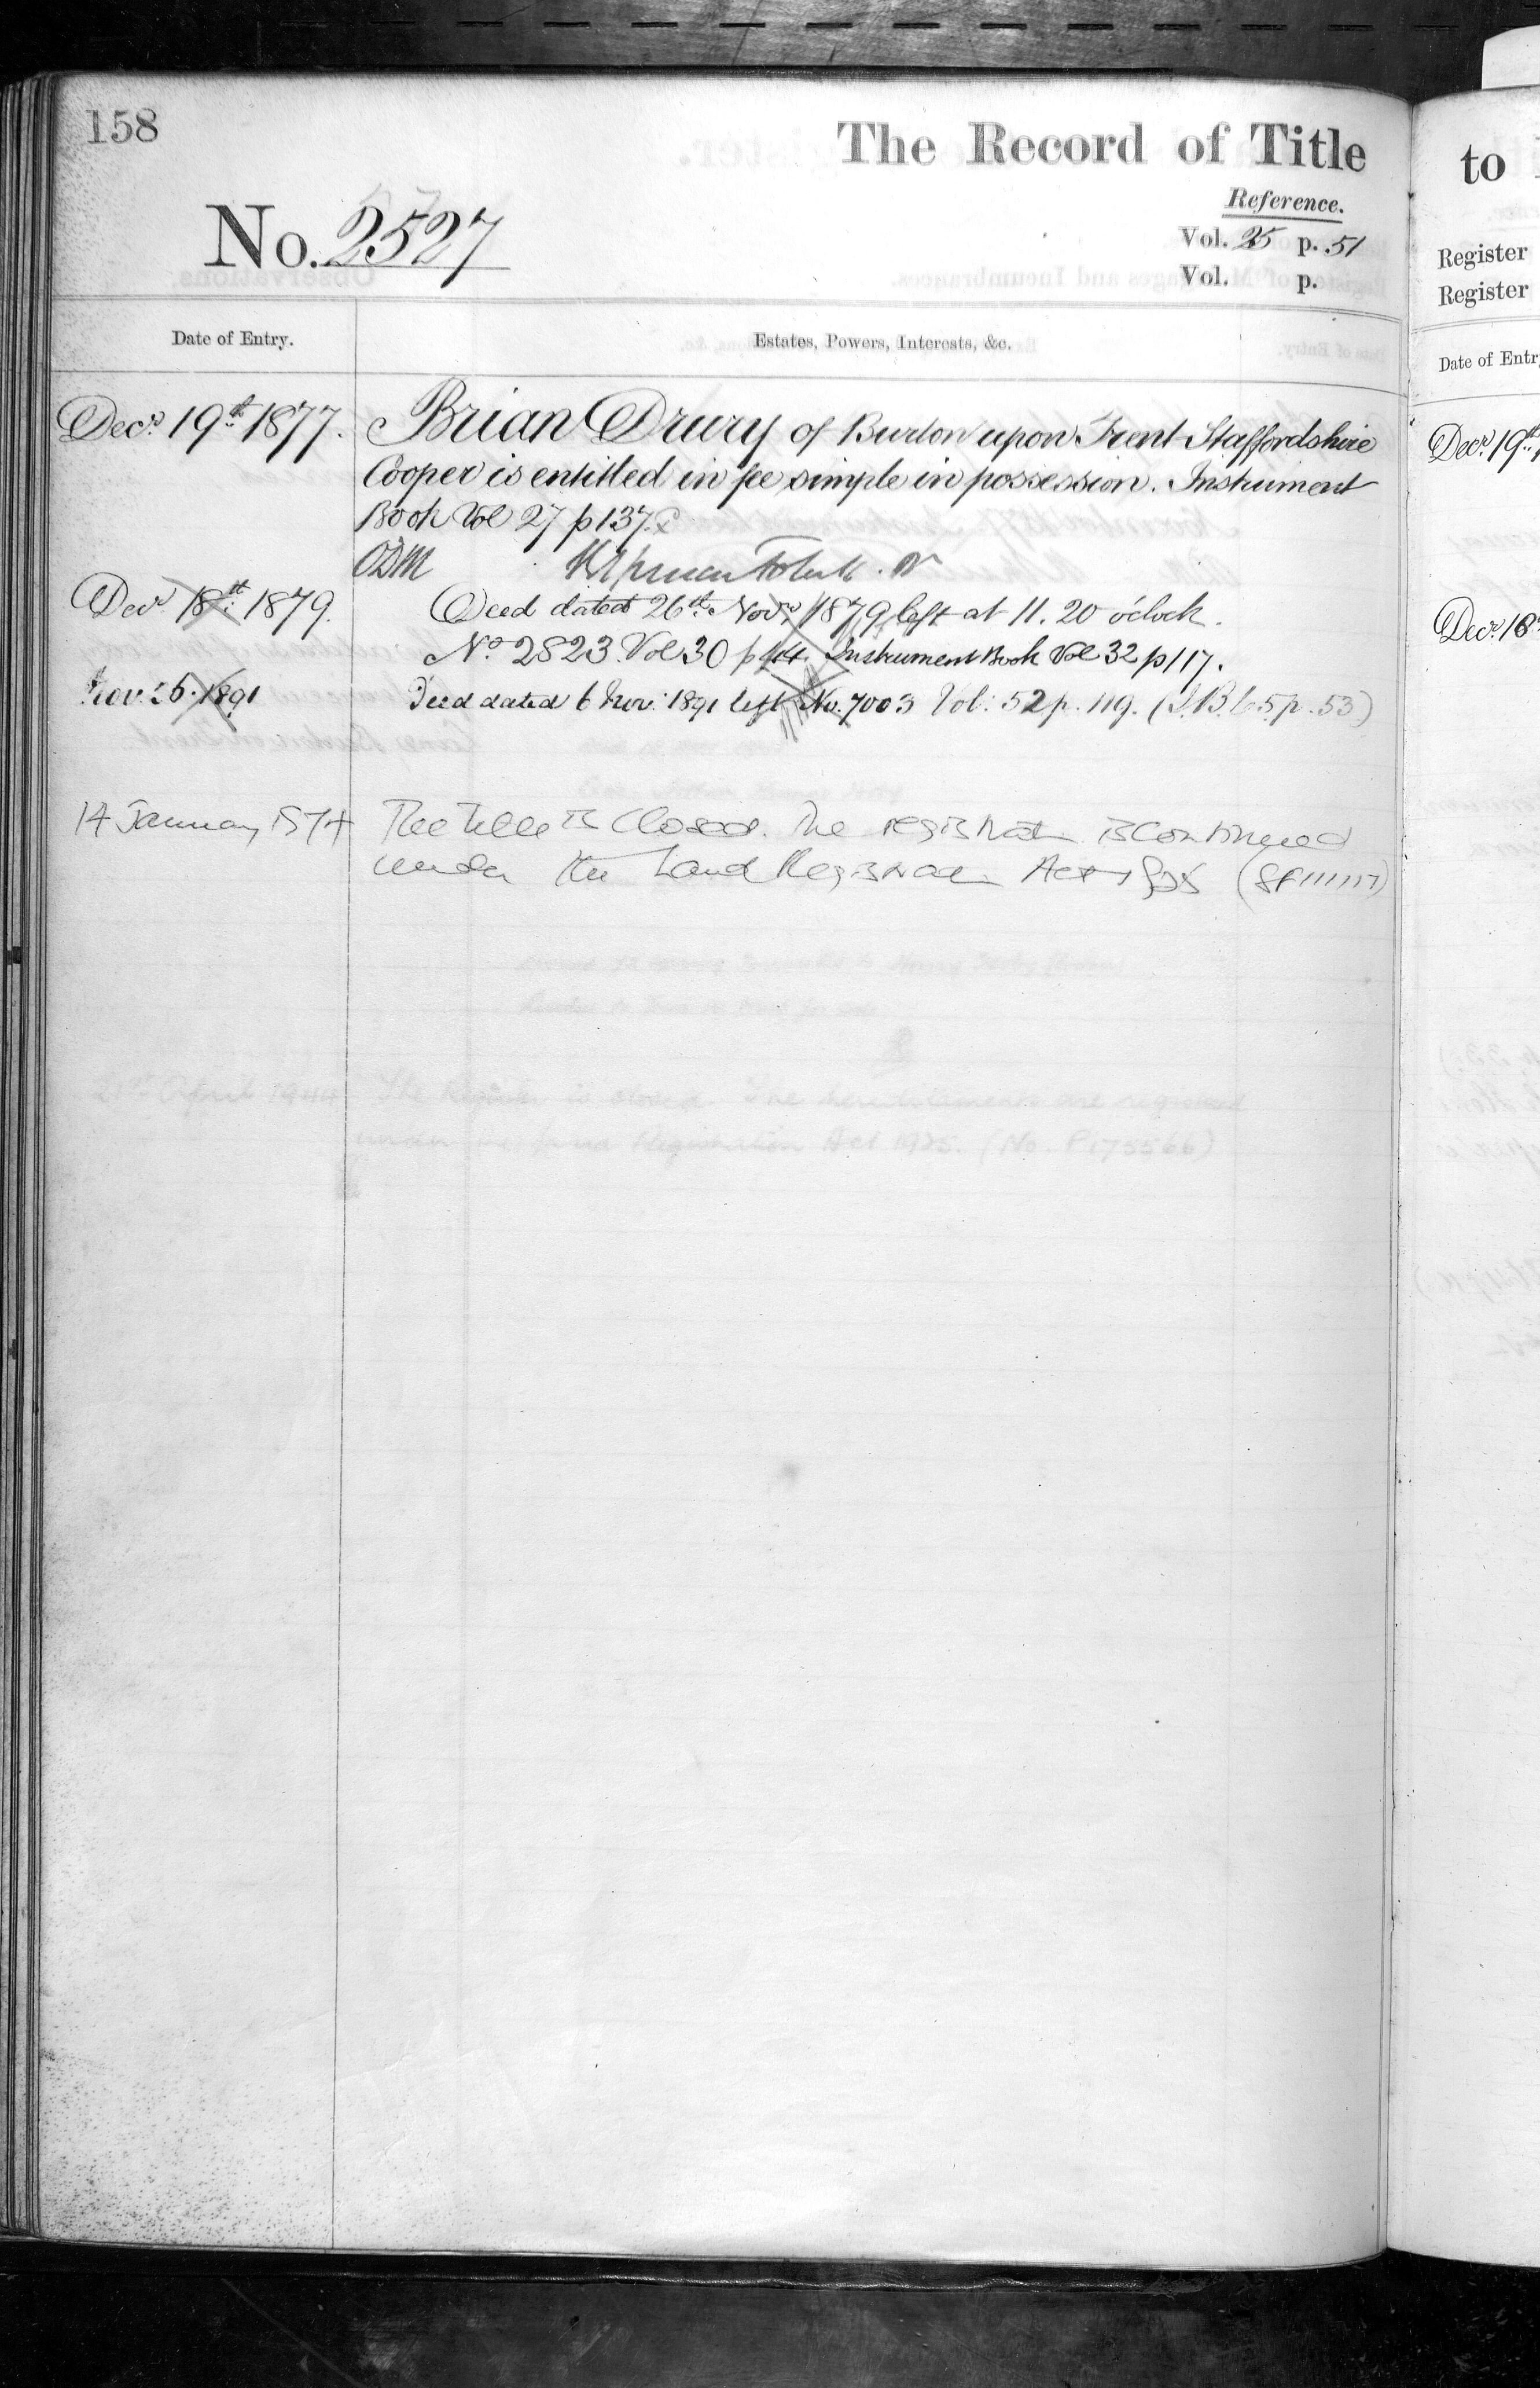 158
The Record of Title
Reference.
No. 2527
Vol. 25 p. 51
Vol. p.
Date of Entry.
Estates, Powers, Interests, &c.
Decr. 19th 1877.
Brian Drury of Burton upon Trent Staffordshire
Cooper is entitled in fee simple in possession. Instrument
Book Vol 27 p 137.
Decr. 18th 1879.
Deed dated 26th Novr. 1879 left at 11.20 o'clock.
No. 2823. Vol 30 p 44. Instrument Book Vol 32 p 117.
Nov. 26. 1891
Deed dated 6 Nov: 1891 left No. 7003 Vol: 52 p. 119. (I.B. 65 p. 53)
14 January 1974
The title is closed. The registration is continued
under the Land Registration Act 1925 (SF11117)
21st April 1944
The Register is closed. The hereditaments are registered
under the Land Registration Act 1925. (No. P175566)
to
Register
Register
Date of Entr
Decr. 19th
Decr. 18